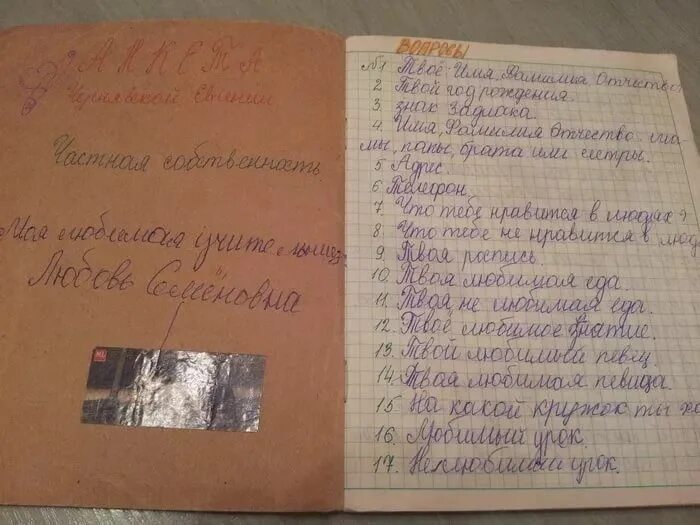 АНКЕТА
Чернявской Евгении
Частная собственность.
Моя любимая учительница
Любовь Семёновна
ВОПРОСЫ
№1 Твоё Имя, Фамилия, Отчество
2 Твой год рождения.
3. знак Задиака.
4. Имя, Фамилия Отчество ма
мы, папы, брата или сестры.
5 Адрес.
6 Телефон
7. Что тебе нравится в людях?
8. Что тебе не нравится в люд
9. Твоя роспись
10. Твоя любимая еда.
11. Твоя не любимая еда.
12. Твоё любимое знатие.
13. Твой любимый певец
14. Твоя любимая певица.
15 На какой кружок ты хо
16. Любимый урок.
17. Не любимый урок.